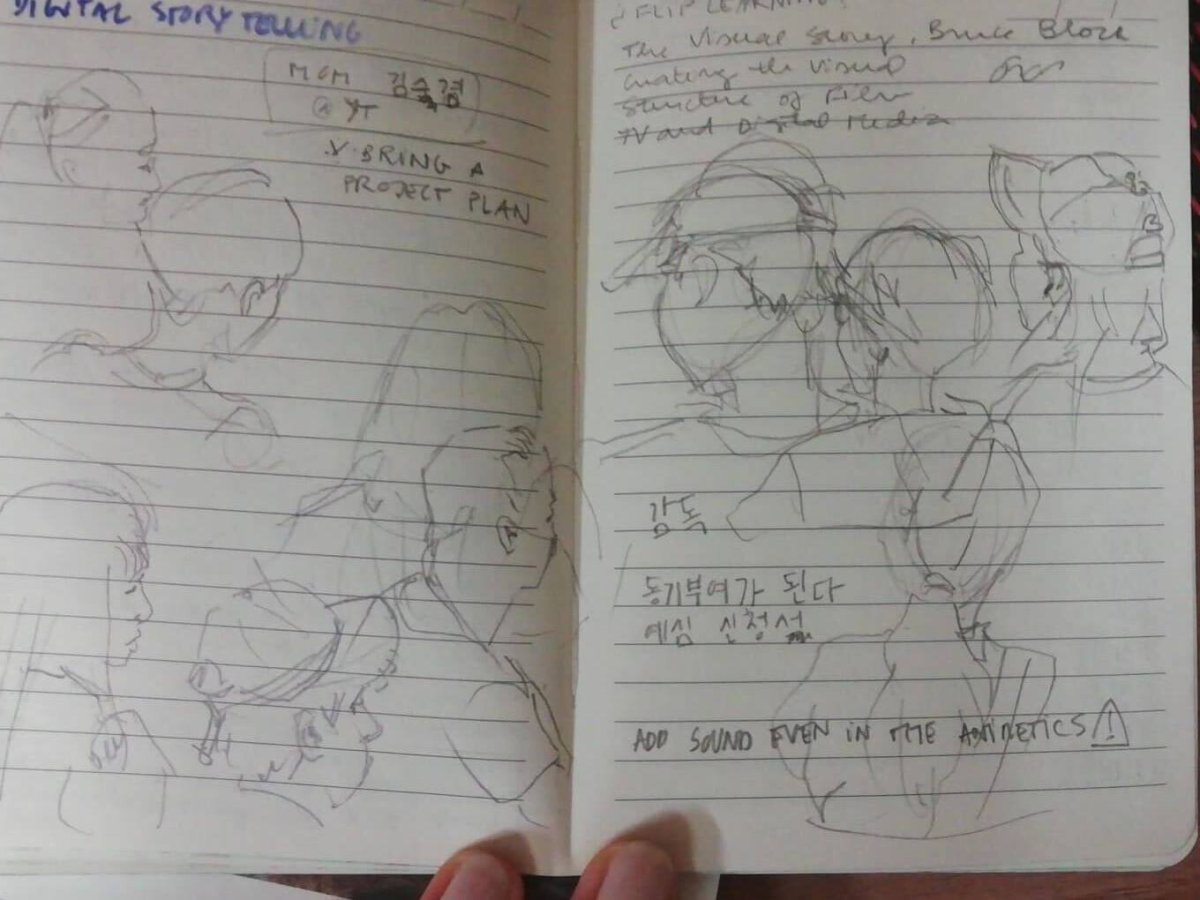 DIGITAL STORYTELLING
MGM 김슬겸
@ YT
BRING A
PROJECT PLAN
FLIP LEARNING
The Visual Story, Bruce Block
creating the visual
structure of Film
TV and Digital Media
감독
동기부여가 된다
예심 신청서
ADD SOUND EVEN IN THE